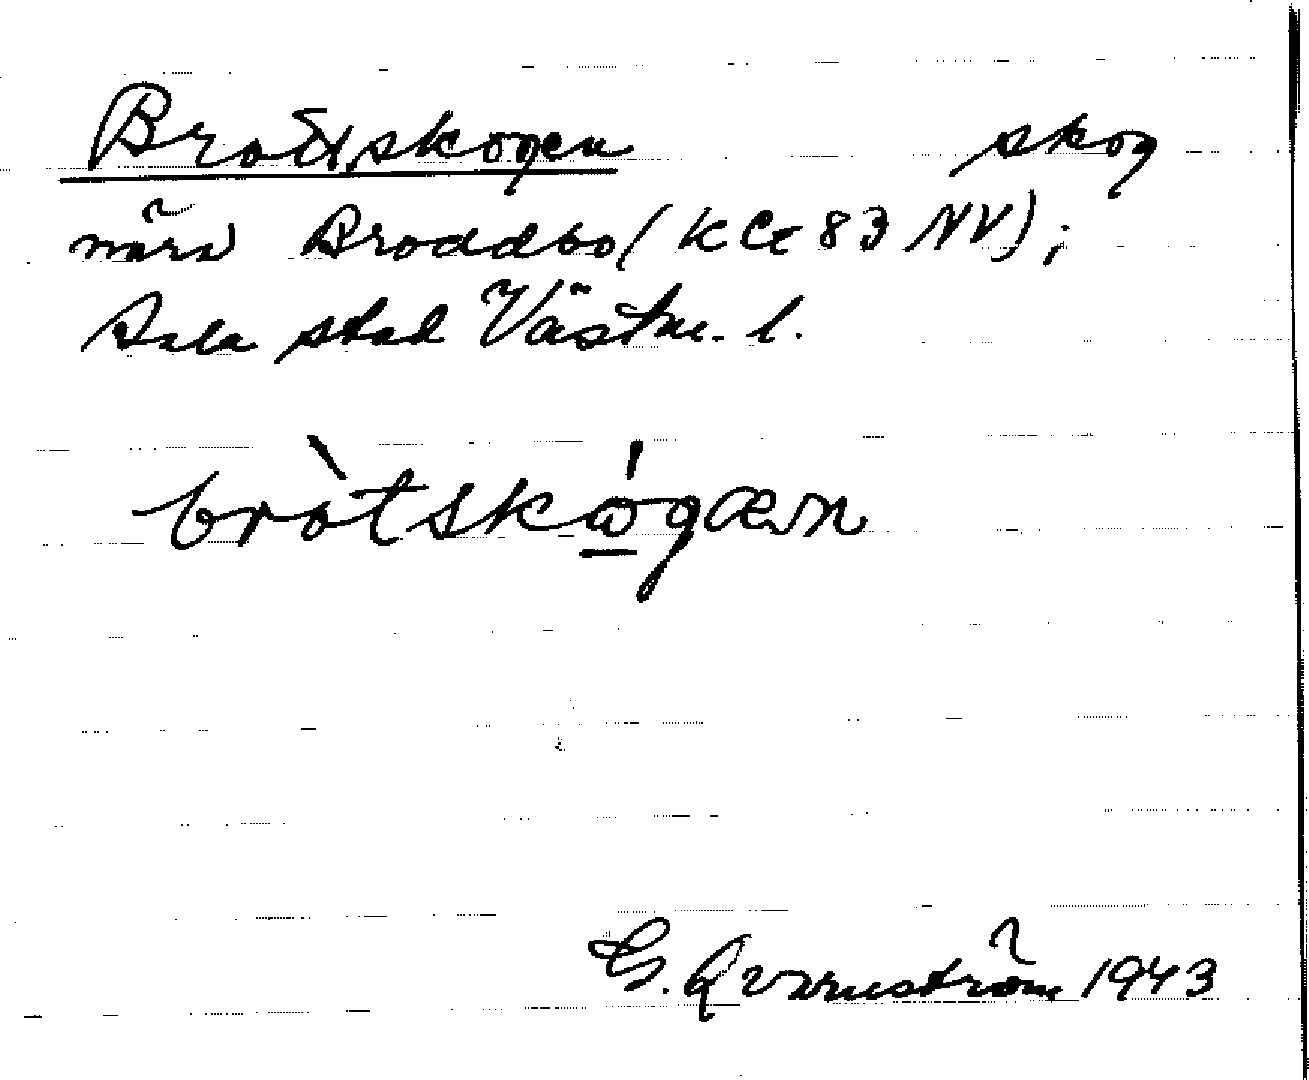 Brottskogen skog
nära Broddbo (K Ce 83 NV);
Sala stad Västm. l.
bròtskógæn
G. Qvarnström 1943